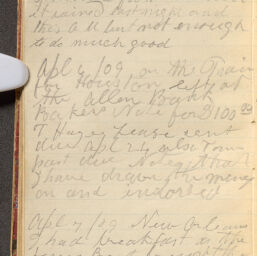 it rained last night and
this A.M. but not enough
to do much good
Apl 6/09 on the Train
for Houston left at
The Allen Bank
Bakers Note for $100 00
T. Hazey Lease rent
due Apl 24 also
past due Note, that
I have drawn the money
on and indorsed
Apl 7/09 New Orleans
I had breakfast at the